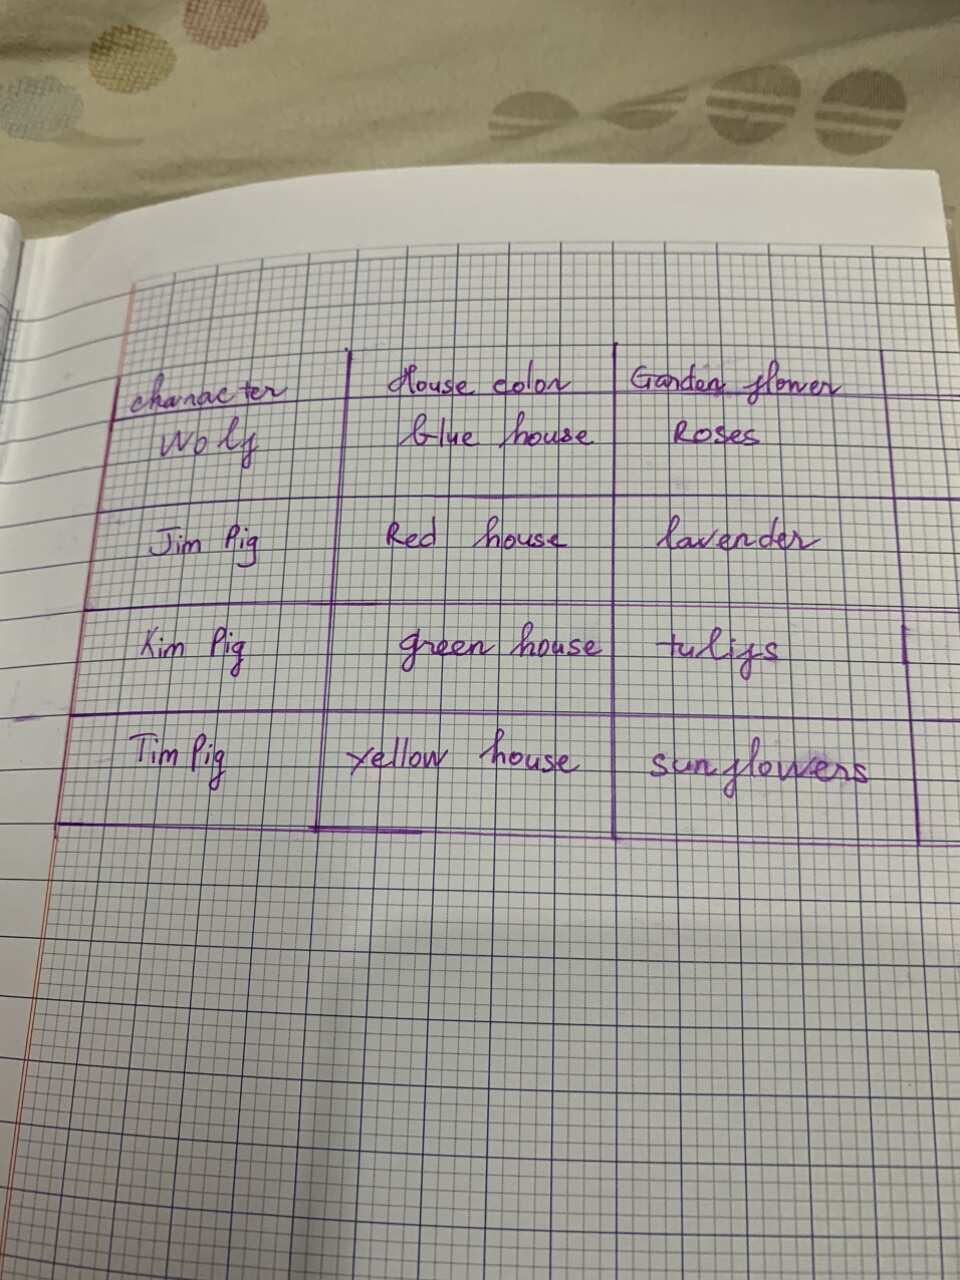 character House color Garden flower
Woly blue house Roses
Jim Pig Red house lavender
Kim Pig green house tulips
Tim Pig yellow house sunflowers